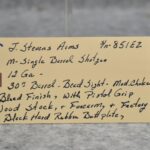 J. Stevens Arms S/n-85162
M-Single Barrel Shotgun
12 Ga -
30" Barrel - Bead Sight - Mod. Choke
Blued Finish, with Pistol Grip
Wood Stock, + Forearm, + Factory
Black Hard Rubber Buttplate,